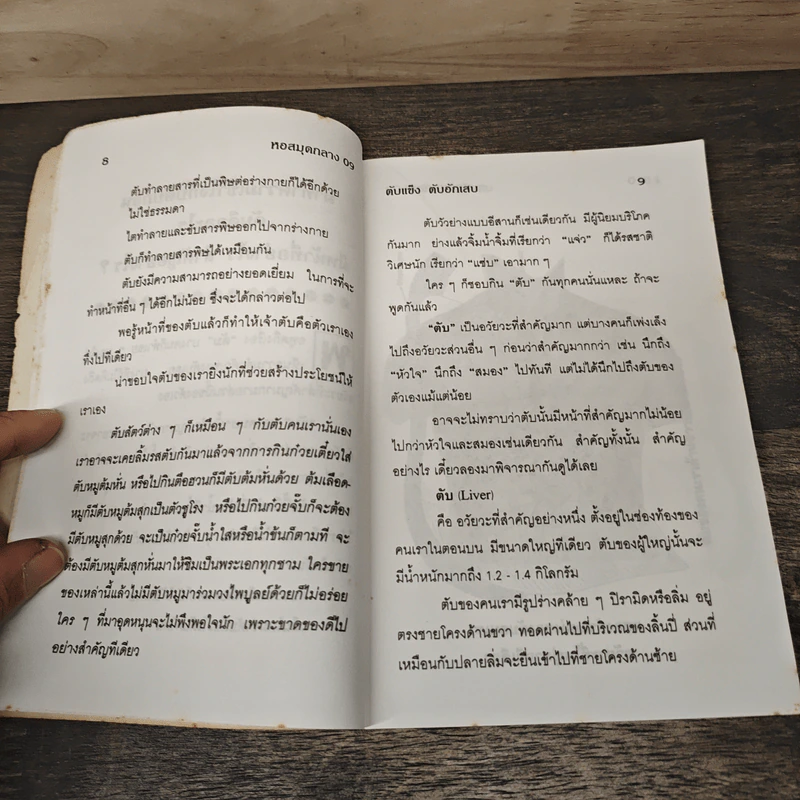 8
หอสมุดกลาง 09
ตับทำลายสารที่เป็นพิษต่อร่างกายก็ได้อีกด้วย
ไม่ใช่ธรรมดา
ไตทำลายและขับสารพิษออกไปจากร่างกาย
ตับก็ทำลายสารพิษได้เหมือนกัน
ตับยังมีความสามารถอย่างยอดเยี่ยม ในการที่จะ
ทำหน้าที่อื่น ๆ ได้อีกไม่น้อย ซึ่งจะได้กล่าวต่อไป
พอรู้หน้าที่ของตับแล้วก็ทำให้เจ้าตับคือตัวเราเอง
ทึ่งไปทีเดียว
น่าขอบใจตับของเรายิ่งนักที่ช่วยสร้างประโยชน์ให้
เราเอง
ตับสัตว์ต่าง ๆ ก็เหมือน ๆ กับตับคนเรานั่นเอง
เราอาจจะเคยลิ้มรสตับกันมาแล้วจากการกินก๋วยเตี๋ยวใส่
ตับหมูต้มหั่น หรือไปกินตือฮวนก็มีตับต้มหั่นด้วย ต้มเลือด-
หมูก็มีตับหมูต้มสุกเป็นตัวชูโรง หรือไปกินก๋วยจั๊บก็จะต้อง
มีตับหมูสุกด้วย จะเป็นก๋วยจั๊บน้ำใสหรือน้ำข้นก็ตามที จะ
ต้องมีตับหมูต้มสุกหั่นมาให้ชิมเป็นพระเอกทุกชาม ใครขาย
ของเหล่านี้แล้วไม่มีตับหมูมาร่วมวงไพบูลย์ด้วยก็ไม่อร่อย
ใคร ๆ ที่มาอุดหนุนจะไม่พึงพอใจนัก เพราะขาดของดีไป
อย่างสำคัญทีเดียว
ตับแข็ง ตับอักเสบ
9
ตับวัวย่างแบบอีสานก็เช่นเดียวกัน มีผู้นิยมบริโภค
กันมาก ย่างแล้วจิ้มน้ำจิ้มที่เรียกว่า “แจ่ว” ก็ได้รสชาติ
วิเศษนัก เรียกว่า “แซ่บ” เอามาก ๆ
ใคร ๆ ก็ชอบกิน “ตับ” กันทุกคนนั่นแหละ ถ้าจะ
พูดกันแล้ว
“ตับ” เป็นอวัยวะที่สำคัญมาก แต่บางคนก็เพ่งเล็ง
ไปถึงอวัยวะส่วนอื่น ๆ ก่อนว่าสำคัญมากกว่า เช่น นึกถึง
“หัวใจ” นึกถึง “สมอง” ไปทันที แต่ไม่ได้นึกไปถึงตับของ
ตัวเองแม้แต่น้อย
อาจจะไม่ทราบว่าตับนั้นมีหน้าที่สำคัญมากไม่น้อย
ไปกว่าหัวใจและสมองเช่นเดียวกัน สำคัญทั้งนั้น สำคัญ
อย่างไร เดี๋ยวลองมาพิจารณากันดูได้เลย
ตับ (Liver)
คือ อวัยวะที่สำคัญอย่างหนึ่ง ตั้งอยู่ในช่องท้องของ
คนเราในตอนบน มีขนาดใหญ่ทีเดียว ตับของผู้ใหญ่นั้นจะ
มีน้ำหนักมากถึง 1.2 - 1.4 กิโลกรัม
ตับของคนเรามีรูปร่างคล้าย ๆ ปิรามิดหรือลิ่ม อยู่
ตรงชายโครงด้านขวา ทอดผ่านไปที่บริเวณของลิ้นปี่ ส่วนที่
เหมือนกับปลายลิ่มจะยื่นเข้าไปที่ชายโครงด้านซ้าย